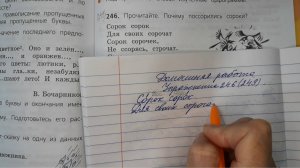 правописание пропущенных
значение последнего предло-
Оно и зелен...,
..., и оранжев...,
цветы: лютики, р...
гла..ки, незабудки
лето! И каких
В. Бочарников
буквы и окончания имён
Подготовьтесь его рас-
на одну из данных
246. Прочитайте. Почему поссорились сороки?
Сорок сорок
Для своих сорочат
Сорок сорочек,
Не ссорясь, строчат.
Домашняя работа
Упражнение 246 (249)
Сорок сорок
Для своих сороча